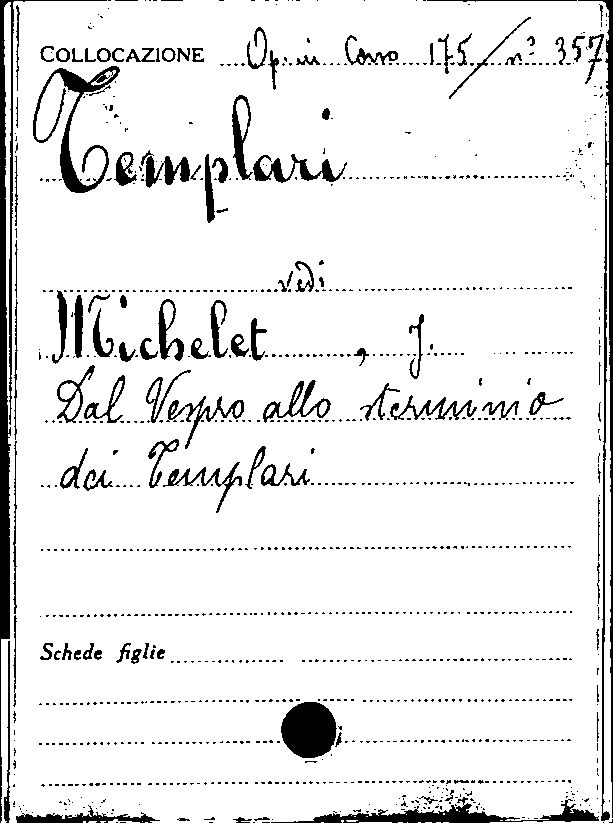 COLLOCAZIONE Op. in Corso 175/nº 357
Templari
vedi
Michelet, J.
Dal Vespro allo sterminio
dei Templari
Schede figlie